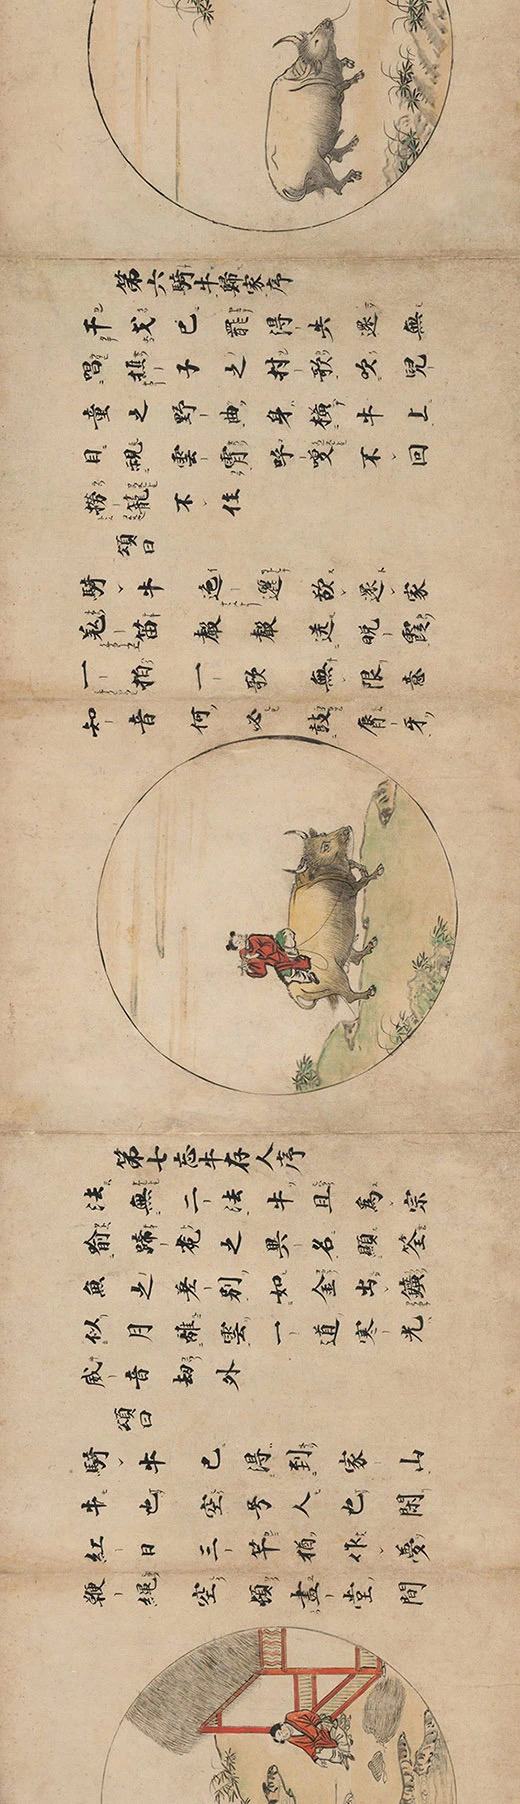 第六騎牛歸家序
干戈已罷得失還無
唱樵子之村歌吹兒
童之野曲身橫牛上
目視雲霄呼喚不回
撈籠不住
頌曰
騎牛迤邐欲還家
羗笛聲聲送晚霞
一拍一歌無限意
知音何必鼓脣牙
第七忘牛存人序
法無二法牛且為宗
喻蹄兔之異名顯筌
魚之差別如金出鑛
似月離雲一道寒光
威音劫外
頌曰
騎牛已得到家山
牛也空兮人也閑
紅日三竿猶作夢
鞭繩空頓畫堂間